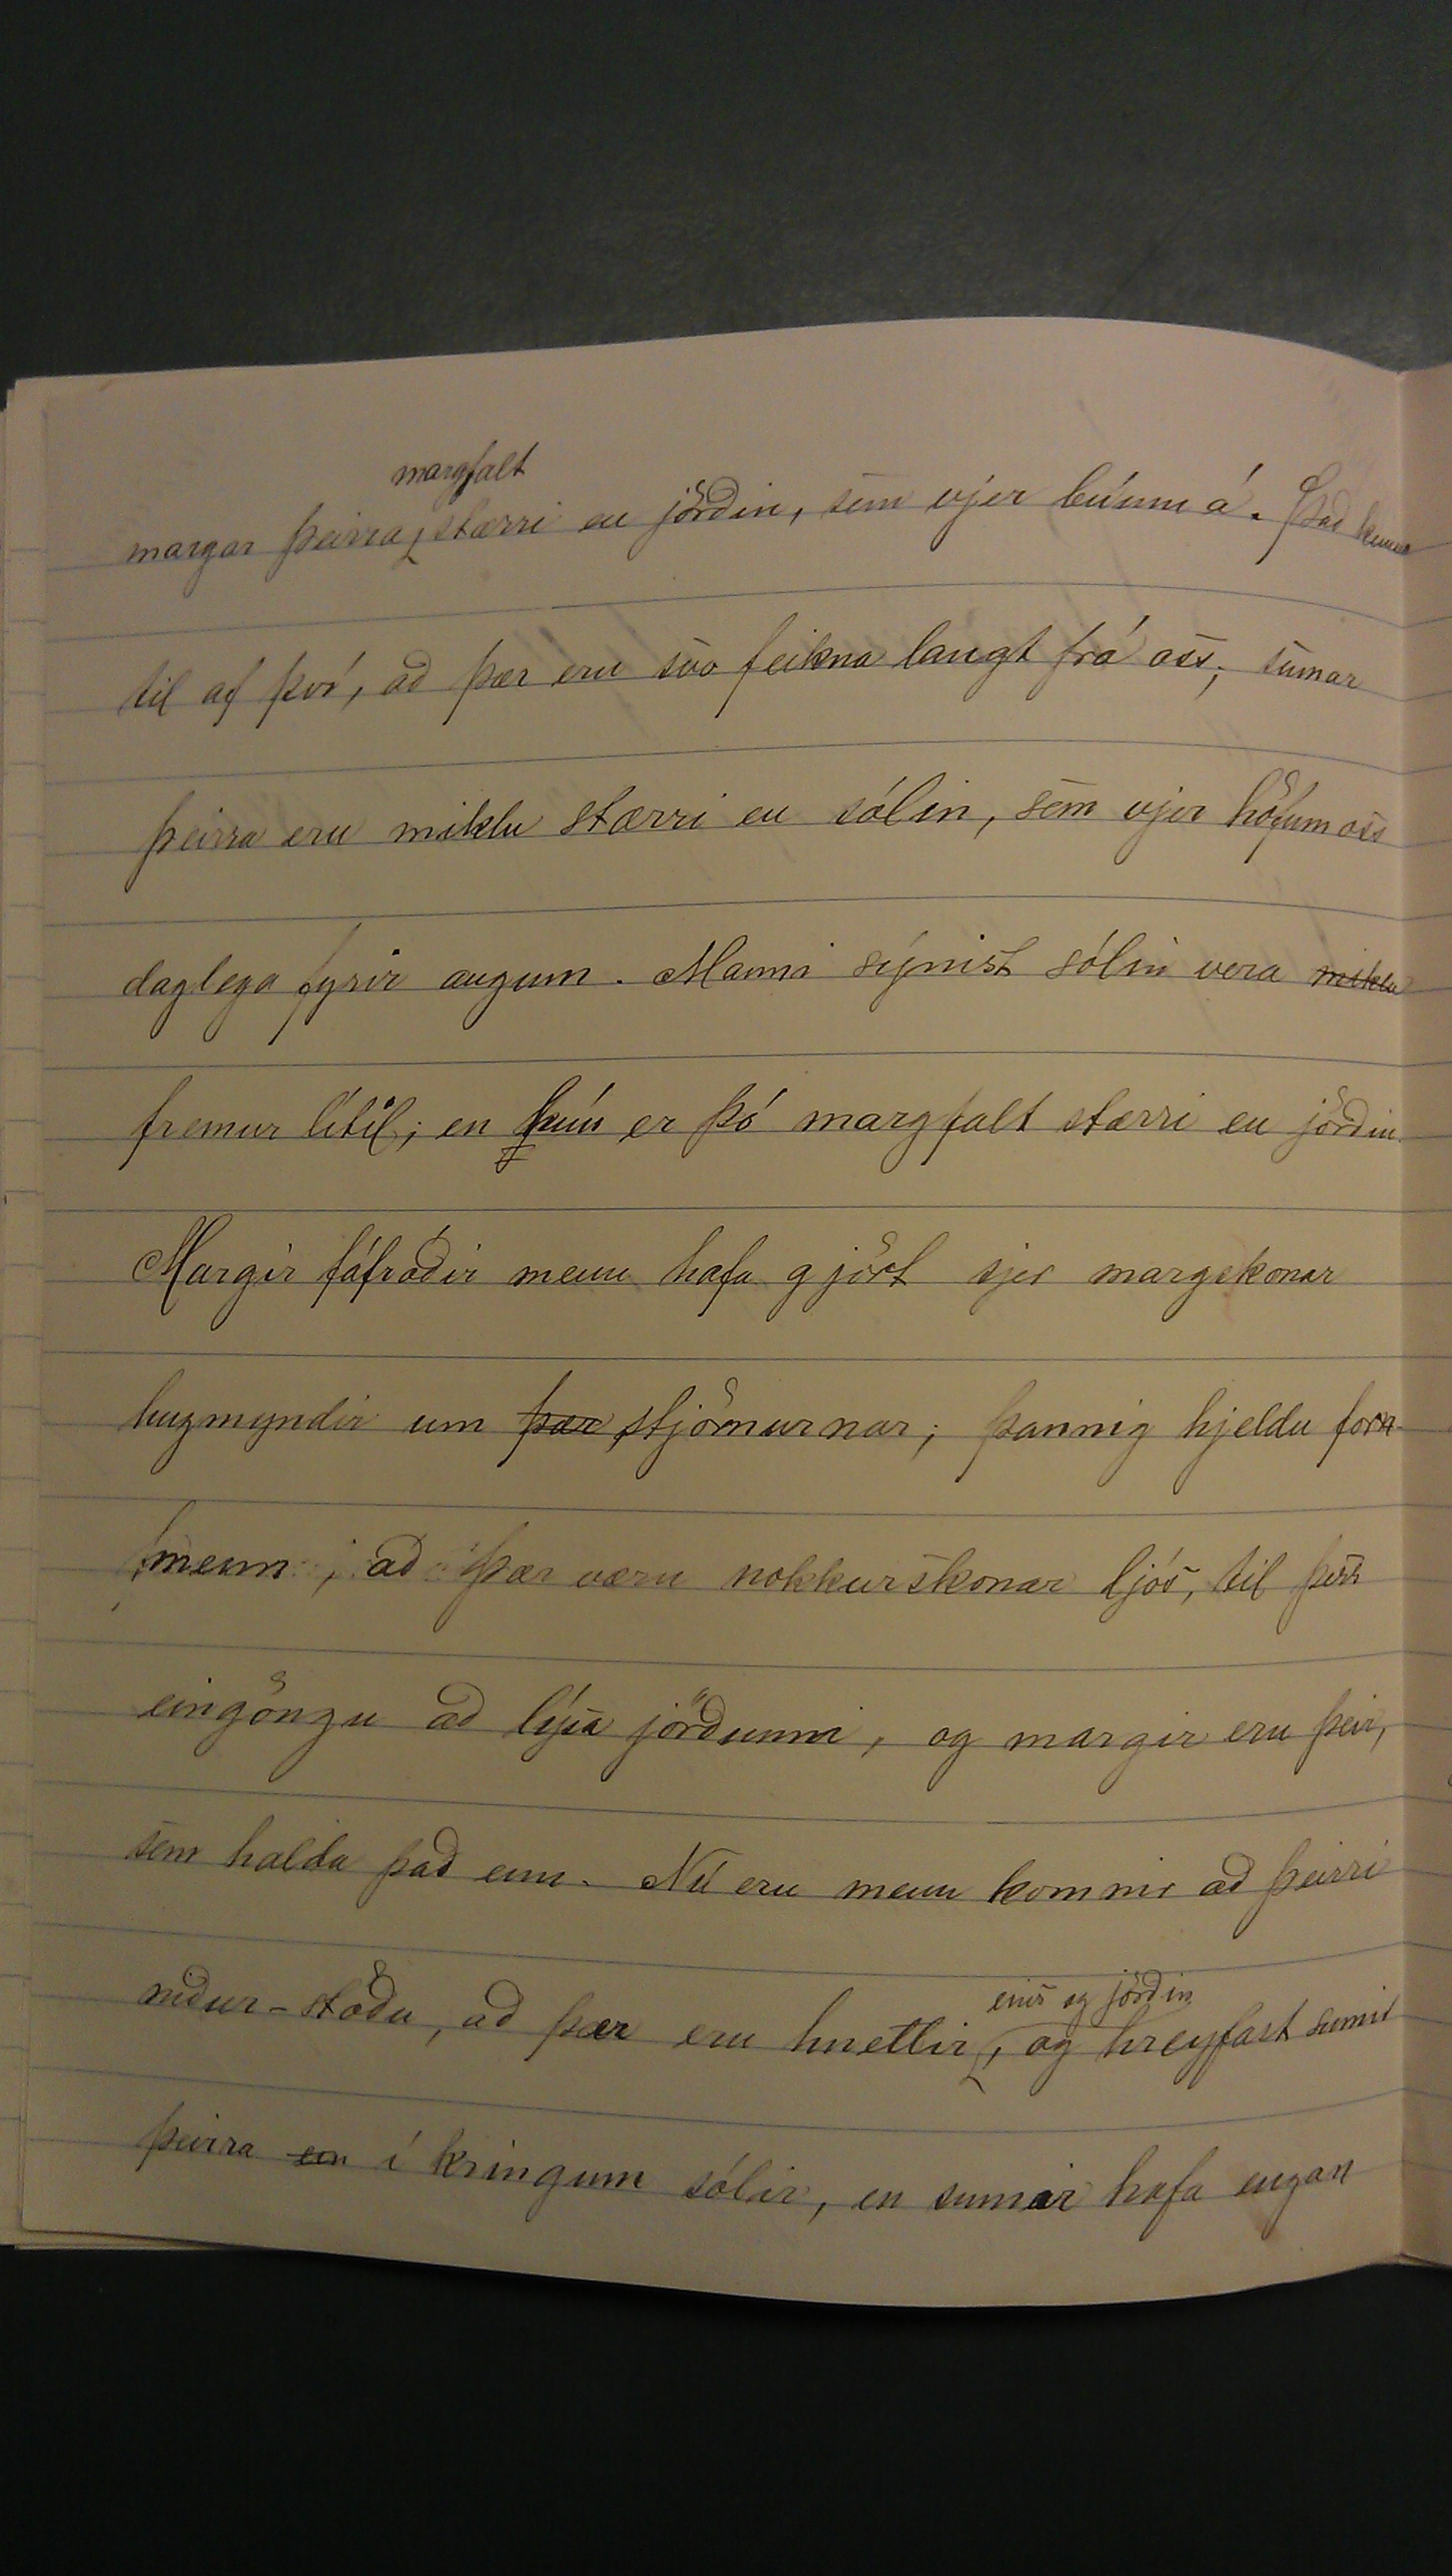 margfalt
margar þeirra stærri en jörðin, sem vjer búum á. Það kemur
til af því, að þær eru svo feikna langt frá oss; sumar
þeirra eru miklu stærri en sólin, sem vjer höfum oss
daglega fyrir augum. Manni sýnist sólin vera miklu
fremur lítil; en hún er þó margfalt stærri en jörðin
Margir fáfróðir menn hafa gjört sjer margskonar
hugmyndir um þær stjörnurnar; þannig hjeldu forn-
menn, að þær væru nokkurskonar ljós, til þess
eingöngu að lýsa jörðunni, og margir eru þeir,
sem halda það enn. Nú eru menn komnir að þeirri
eins og jörðin
niður-stöðu, að þær eru hnettir, og hreyfast sumir
þeirra en í kringum sólir, en sumir hafa engan